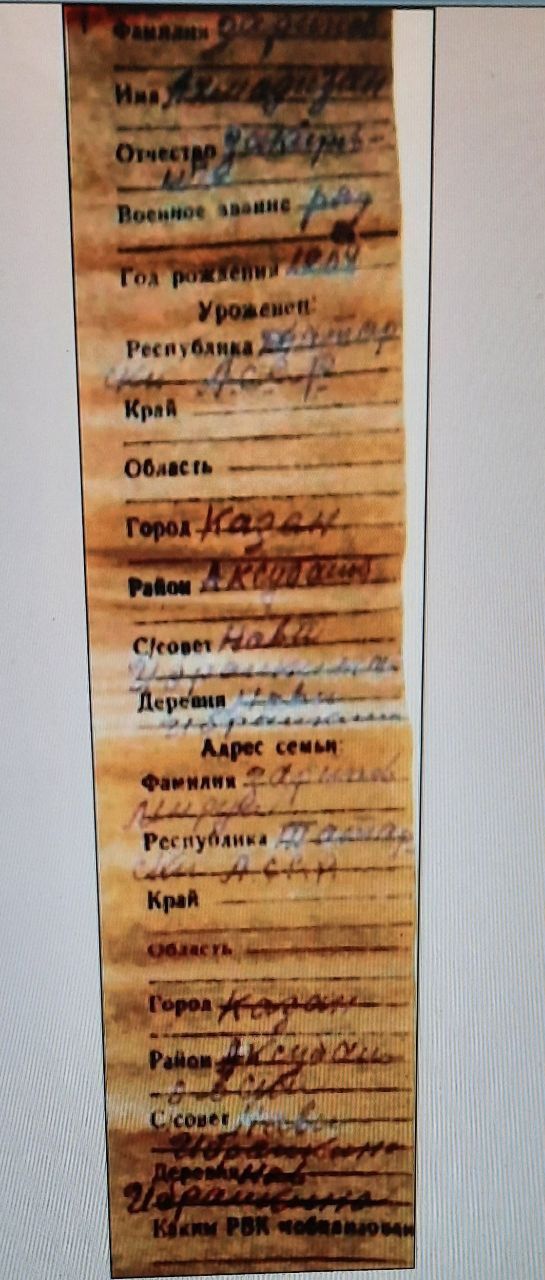 Фамилия Зарипов
Имя Ахмадизан
Отчество
Военное звание ряд
Год рождения
Уроженец:
Республика Татар
ски АССР
Край
Область
Город Казан
Район Аксубаив
С/совет Нави
Ибрашкина
Деревня Нави
Ибрашкин
Адрес семьи:
Фамилия Зарипов
Республика Татар
ски АССР
Край
Область
Город Казан
Район Аксубаи
С/совет Нави
Ибрашкино
Деревня Нав
Ибрашкино
Каким РВК мобилизован